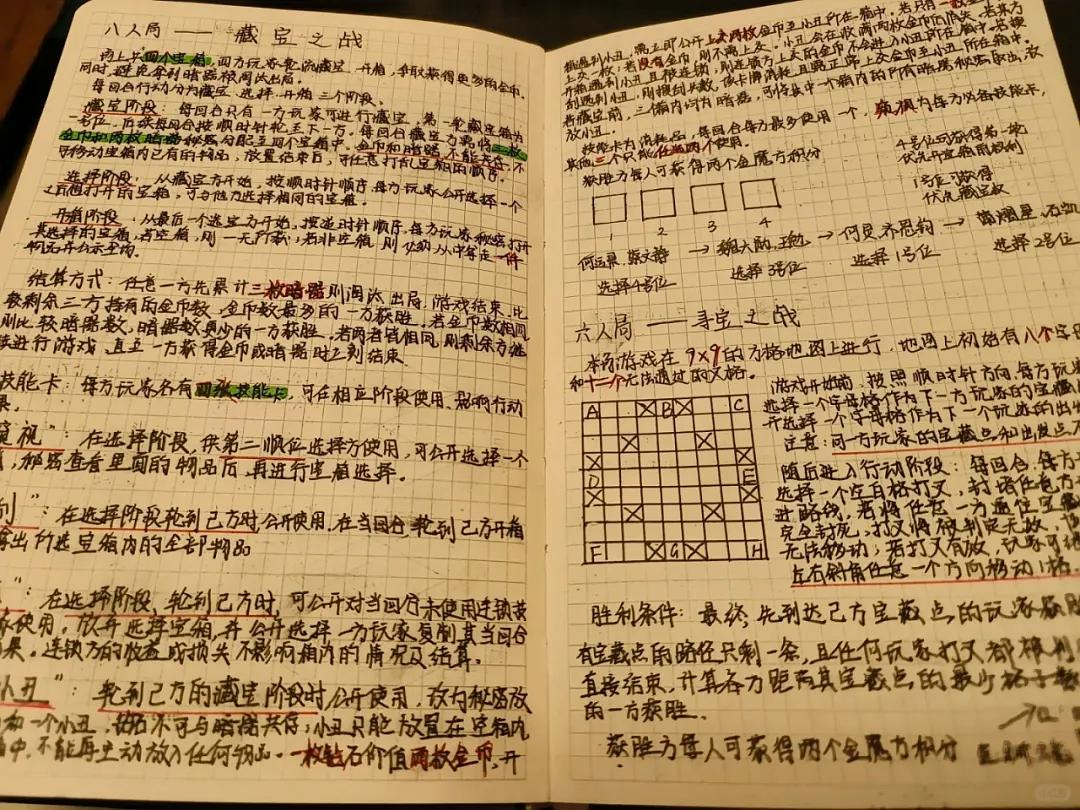 八人局 —— 藏宝之战
场上共四个宝箱,四方玩家轮流藏宝、开箱,争取获得更多的金币,
同时,避免拿到暗器被淘汰出局。
每回合行动分为藏宝、选择、开箱三个阶段。
藏宝阶段:每回合只有一方玩家可进行藏宝,第一轮藏宝者为
一号位,后续每回合按顺时针轮至下一方。每回合藏宝方需将三枚
金币和两枚暗器秘密分配至四个宝箱中。金币和暗器不能共存,不
可移动宝箱内已有的物品,放置结束后,可任意打乱宝箱的顺序。
选择阶段:从藏宝方开始,按顺时针顺序,每方玩家公开选择一个
想打开的宝箱,可与他方选择相同的宝箱。
开箱阶段:从最后一个选宝方开始,按逆时针顺序,每方玩家秘密打开
其选择的宝箱,若空箱,则一无所获;若非空箱,则必须从中拿走一件
物品并公示全场。
结算方式:任意一方先累计三枚暗器则淘汰出局,游戏结束,比
较剩余三方持有的金币数,金币数最多的一方获胜。若金币数相同,
则比较暗器数,暗器数更少的一方获胜。若两者皆相同,则剩余方继
续进行游戏,直至一方获得金币或暗器时立刻结束
技能卡:每方玩家各有四张技能卡,可在相应阶段使用,影响行动
果。
窥视":在选择阶段,供第二顺位选择方使用,可公开选择一个
,秘密查看里面的物品后,再进行宝箱选择。
":在选择阶段轮到己方时公开使用,在当回合轮到己方开箱
出所选宝箱内的全部物品
":在选择阶段,轮到己方时,可公开对当回合未使用连锁技
家使用,放弃选择宝箱,并公开选择一方玩家复制其当回合
果。连锁方的收益或损失不影响箱内的情况及结算。
小丑":轮到己方的藏宝阶段时公开使用,改为秘密放
和一个小丑,钻石不可与暗器共存,小丑只能放置在空箱内
中,不能再主动放入任何物品。一枚钻石价值两枚金币,开
箱遇到小丑,需立即公开上交两枚金币至小丑所在箱中。若只有一枚
上交一枚,若没有金币,则不需上交。小丑会在收满两枚金币后消失,若某方
开箱遇到小丑且被连锁,则连锁方上交的金币不会进入小丑所在箱中。若搜
刮遇到小丑,则搜刮失败,该卡牌消耗且需正常上交金币至小丑所在箱中。
若藏宝前,三个箱内均为暗器,可将其中一个箱内的所有暗器秘密取出,改
放小丑。
技能卡为消耗品,每回合每方最多使用一个,窥视为每方必备技能卡,
其他三个只能任选两个使用。
获胜方每人可获得两个金魔方积分
4号位可获得第一轮
优先开宝箱的权利
1号位可获得
优先藏宝权
1 2 3 4
何运晨、蔡文静 → 魏大勋、 → 何炅、齐思钧 → 蒲熠星、石凯
选择4号位 选择3号位 选择1号位 选择2号位
六人局 —— 寻宝之战
本场游戏在9×9的方格地图上进行,地图上初始有八个字母
和十二个无法通过的叉格。
游戏开始前,按照顺时针方向,每方玩家
选择一个字母格作为下一方玩家的宝藏
并选择一个字母格作为下一个玩家的出
注意:同一方玩家的宝藏点和出发点不
A B C
D E
F G H
随后进入行动阶段:每回合,每方
选择一个空白格打叉,封堵任意方
进路线,若将任意一方通往宝藏
完全封死,打叉将被判定无效,
无法移动;若打叉有效,玩家可
左右斜角任意一个方向移动1格。
胜利条件:最终,先到达己方宝藏点的玩家获胜
有宝藏点的路径只剩一条,且任何玩家打叉都被判
直接结束,计算各方距离其宝藏点的最少格子数
的一方获胜。
获胜方每人可获得两个金魔方积分